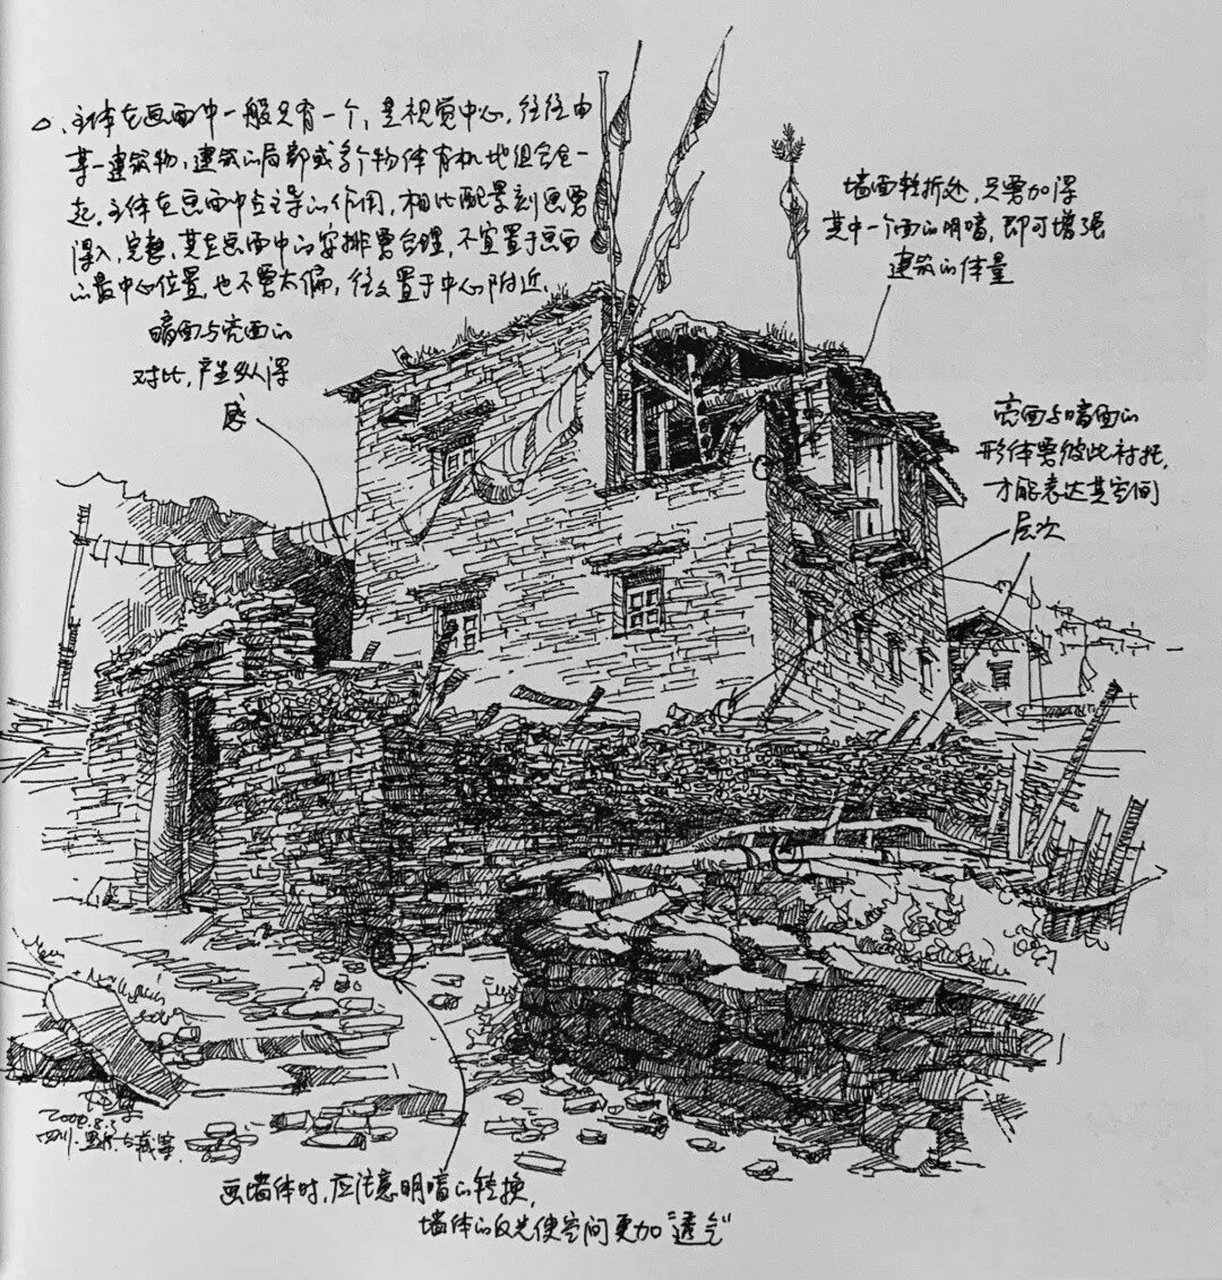 △、主体在画面中一般只有一个,是视觉中心,往往由
某一建筑物,建筑的局部或多个物体有机地组合在一
起。主体在画面中占主导的作用,相比配景刻画要
深入,完整,其在画面中的安排要合理,不宜置于画面
的最中心位置,也不要太偏,往往置于中心附近、
暗面与亮面的
对比,产生纵深
感
墙面转折处,只要加深
其中一个面的明暗,即可增强
建筑的体量
亮面与暗面的
形体要彼此衬托,
才能表达其空间
层次
2009.8.3
四川·
画墙体时,应注意明暗的转换,
墙体的反光使空间更加“透气”